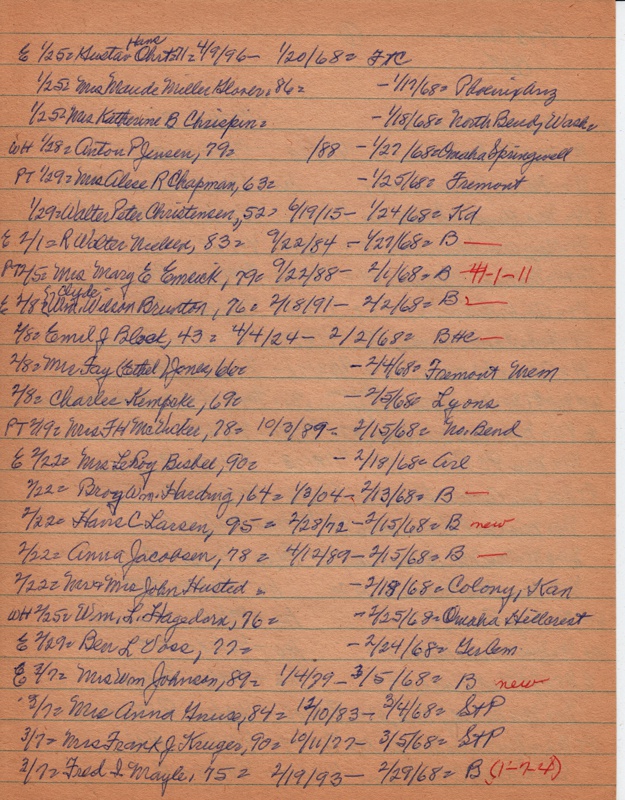 Hans
E 1/25= Gustav Ohrt 71= 4/9/96 - 1/20/68 =
1/25= Mrs Maude Miller Glover, 86= - 1/17/68= Phoenix Ariz
1/25= Mrs Katherine B Chrispen= - 1/18/68= North Bend, Wash=
WH 1/28= Anton P Jensen, 79= /88 - 1/27/68= Omaha Springwell
PT 1/29= Mrs Alese R Chapman, 63= - 1/25/68= Fremont
1/29= Walter Peter Christensen, 52= 6/19/15 - 1/24/68= Kd
E 2/1= R Walter Nielsen, 83= 9/22/84 - 1/27/68= B —
PT 2/5= Mrs Mary E Emrick, 79= 9/22/88 - 2/1/68= B 4-1-11
Clyde
E 2/8= Wm. Wilson Brunton, 76= 2/18/91 - 2/2/68= B —
2/8= Emil J Block, 43= 4/4/24 - 2/2/68= BHC —
2/8= Mrs Fay (Ethel) Jones, 66= - 2/4/68= Fremont Mem
2/8= Charles Kempcke, 69= - 2/5/68= Lyons
PT 2/19= Mrs F H McVicker, 78= 10/3/89 = 2/15/68= No. Bend
E 2/22= Mrs LeRoy Bisbel, 90= - 2/18/68= Arl
2/22= Wm. Harding, 64= 1/3/04 - 2/13/68= B —
2/22= Hans C Larsen, 95= 2/28/72 - 2/15/68= B new
2/22= Anna Jacobsen, 78= 4/12/89 - 2/15/68= B —
2/22= Mr & Mrs John Husted = - 2/18/68= Colony, Kan
WH 2/25= Wm. L. Hagedorn, 76= - 2/25/68= Omaha Hillcrest
E 2/29= Ben L Voss, 77= - 2/24/68=
E 3/7= Mrs Wm Johnson, 89= 1/4/79 - 3/5/68= B new
3/7= Mrs Anna Gnuse, 84= 12/10/83 - 3/4/68= StP
3/7= Mrs Frank J Kruger, 90= 10/11/77 - 3/5/68= StP
3/7= Fred I Mayle, 75= 2/19/93 - 2/29/68= B (1-7-4)